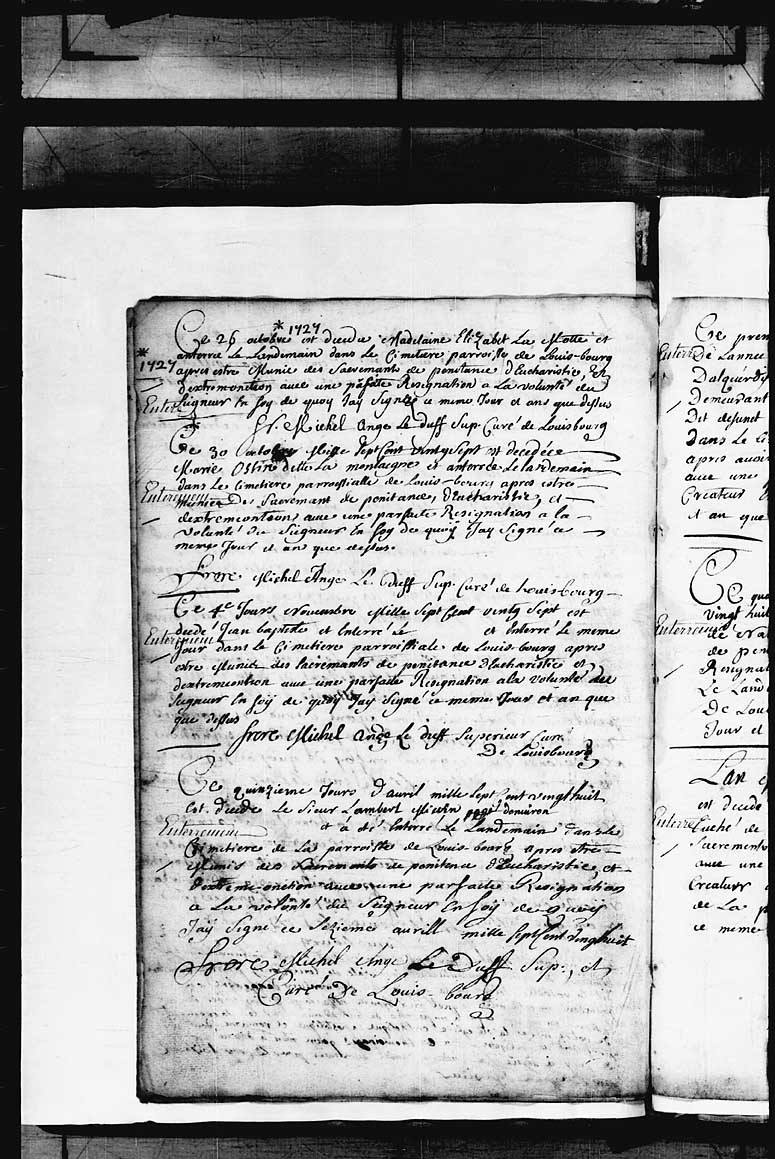 * 1727
Ce 26 octobre est decedee Madelaine Elizabet La Motte et
* 1727
enterré Le Landemain dans Le Cimetiere parroisse de Louis-bourg
apres estre Munie des Sacremants de penitance d'Eucharistie, et
d'extremonction avec une parfaite Resignation a La Volunté du
Enterr
Seigneur En foy de quoy Jay Signez ce meme Jour et ans que dessus
fr. Michel Ange Le duff Sup. Curé de Louisbourg
Ce 30 octobre Mille Sept Cent vingt Sept est decedéee
Marie Ossine ditte La montaigne et anterrée Le Landemain
dans Le Cimetiere parroissialle de Louis-bourg apres estre
Enterrement
Munier Des Sacremant de penitance, d'Eucharistie, et
d'extremontion avec une parfaite Resignation a la
volonté Du Seigneur En foy de quoy Jay Signé ce
meme Jour et an que dessus.
frere Michel Ange Le duff Sup. Curé de Louisbourg
Ce 4e Jours Novembre Mille Sept Cent vingt Sept est
decedé Jean baptiste et Enterré Le meme
Enterrement
Jour dans Le Cimetiere parroissiale de Louis-bourg apres
estre Munie des Sacremants de penitance d'Eucharistie et
d'extremontion avec une parfaite Resignation a la volonté du
Seigneur En foy de quoy Jay Signé ce meme Jour et an que
que dessus
frere Michel Ange Le duff Superieur Curé
De Louisbourg
Ce quinzieme Jours d'avril mille Sept Cent vingt huit
est decede Le Sieur Lambert agé denviron
Enterrement
et a eté Enterré Le Landemain dans Le
Cimetiere de La parroisse de Louis-bourg apres etre
Munis des Sacremants de penitence d'Eucharistie, et
d'extreme-onction avec une parfaite Resignation
a La volonté du Seigneur En foy de quoy
Jay Signé ce Sezieme avrill mille Sept Cent vingt huit
frere Michel Ange Le Duff Sup., et
Curé De Louis-bourg
Ce prem
Enterre
De Lannee
Demeurant
Dit defunct
Dans Le Ci
apres avoir
avec une
Createur
et an que
Ce qua
vingt huit
Enterrement
de peni
Resignat
Le Land
De Loui
Jour et
Lan
est decede
Enterre
Sacrements
avec une
Createur
de La p
ce meme